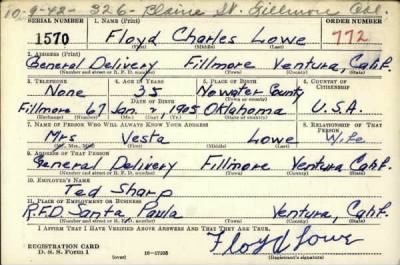 10-9-42- 326- Blaine St. Fillmore Cal.
SERIAL NUMBER 1. NAME (Print) ORDER NUMBER
1570 Floyd Charles Lowe 772
(First) (Middle) (Last)
2. ADDRESS (Print)
General Delivery Fillmore Ventura, Calif.
(Number and street or R. F. D. number) (Town) (County) (State)
3. TELEPHONE 4. AGE IN YEARS 5. PLACE OF BIRTH 6. COUNTRY OF CITIZENSHIP
None 35 Nowater County
DATE OF BIRTH (Town or county)
Fillmore 67 Jan. 7, 1905 Oklahoma U.S.A.
(Exchange) (Number) (Mo.) (Day) (Yr.) (State or country)
7. NAME OF PERSON WHO WILL ALWAYS KNOW YOUR ADDRESS 8. RELATIONSHIP OF THAT PERSON
Mrs Vesta Lowe Wife
(Mr., Mrs., Miss) (First) (Middle) (Last)
9. ADDRESS OF THAT PERSON
General Delivery Fillmore Ventura Calif.
(Number and street or R. F. D. number) (Town) (County) (State)
10. EMPLOYER'S NAME
Ted Sharp
11. PLACE OF EMPLOYMENT OR BUSINESS
R.F.D Santa Paula Ventura, Calif.
(Number and street or R. F. D. number) (Town) (County) (State)
I AFFIRM THAT I HAVE VERIFIED ABOVE ANSWERS AND THAT THEY ARE TRUE.
REGISTRATION CARD
D. S. S. Form 1
Floyd Lowe
(Registrant's signature)